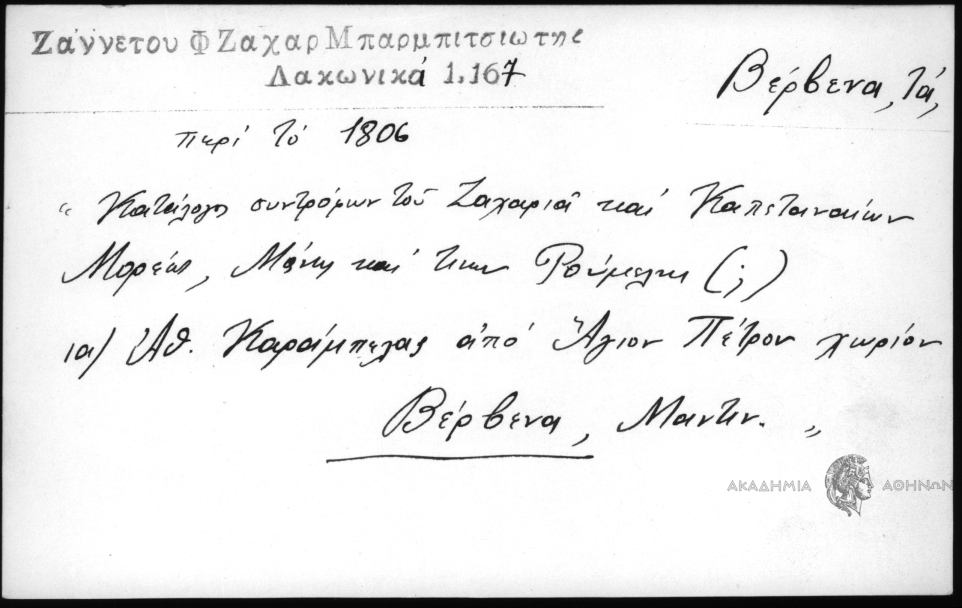 Ζαννετου Φ Ζαχαρ Μπαρμπιτσιωτης
Λακωνικά 1.167
Βέρβενα, τά,
περί τό 1806
" Κατάλογος συντρόφων τοῦ Ζαχαριᾶ καί Καπεταναίων
Μορέως, Μάνης καί των Ρούμελης (;)
ια) Ἀθ. Καράμπελας ἀπό Ἅγιον Πέτρον χωρίον
Βέρβενα, Μαντιν. "
ΑΚΑΔΗΜΙΑ ΑΘΗΝΩΝ